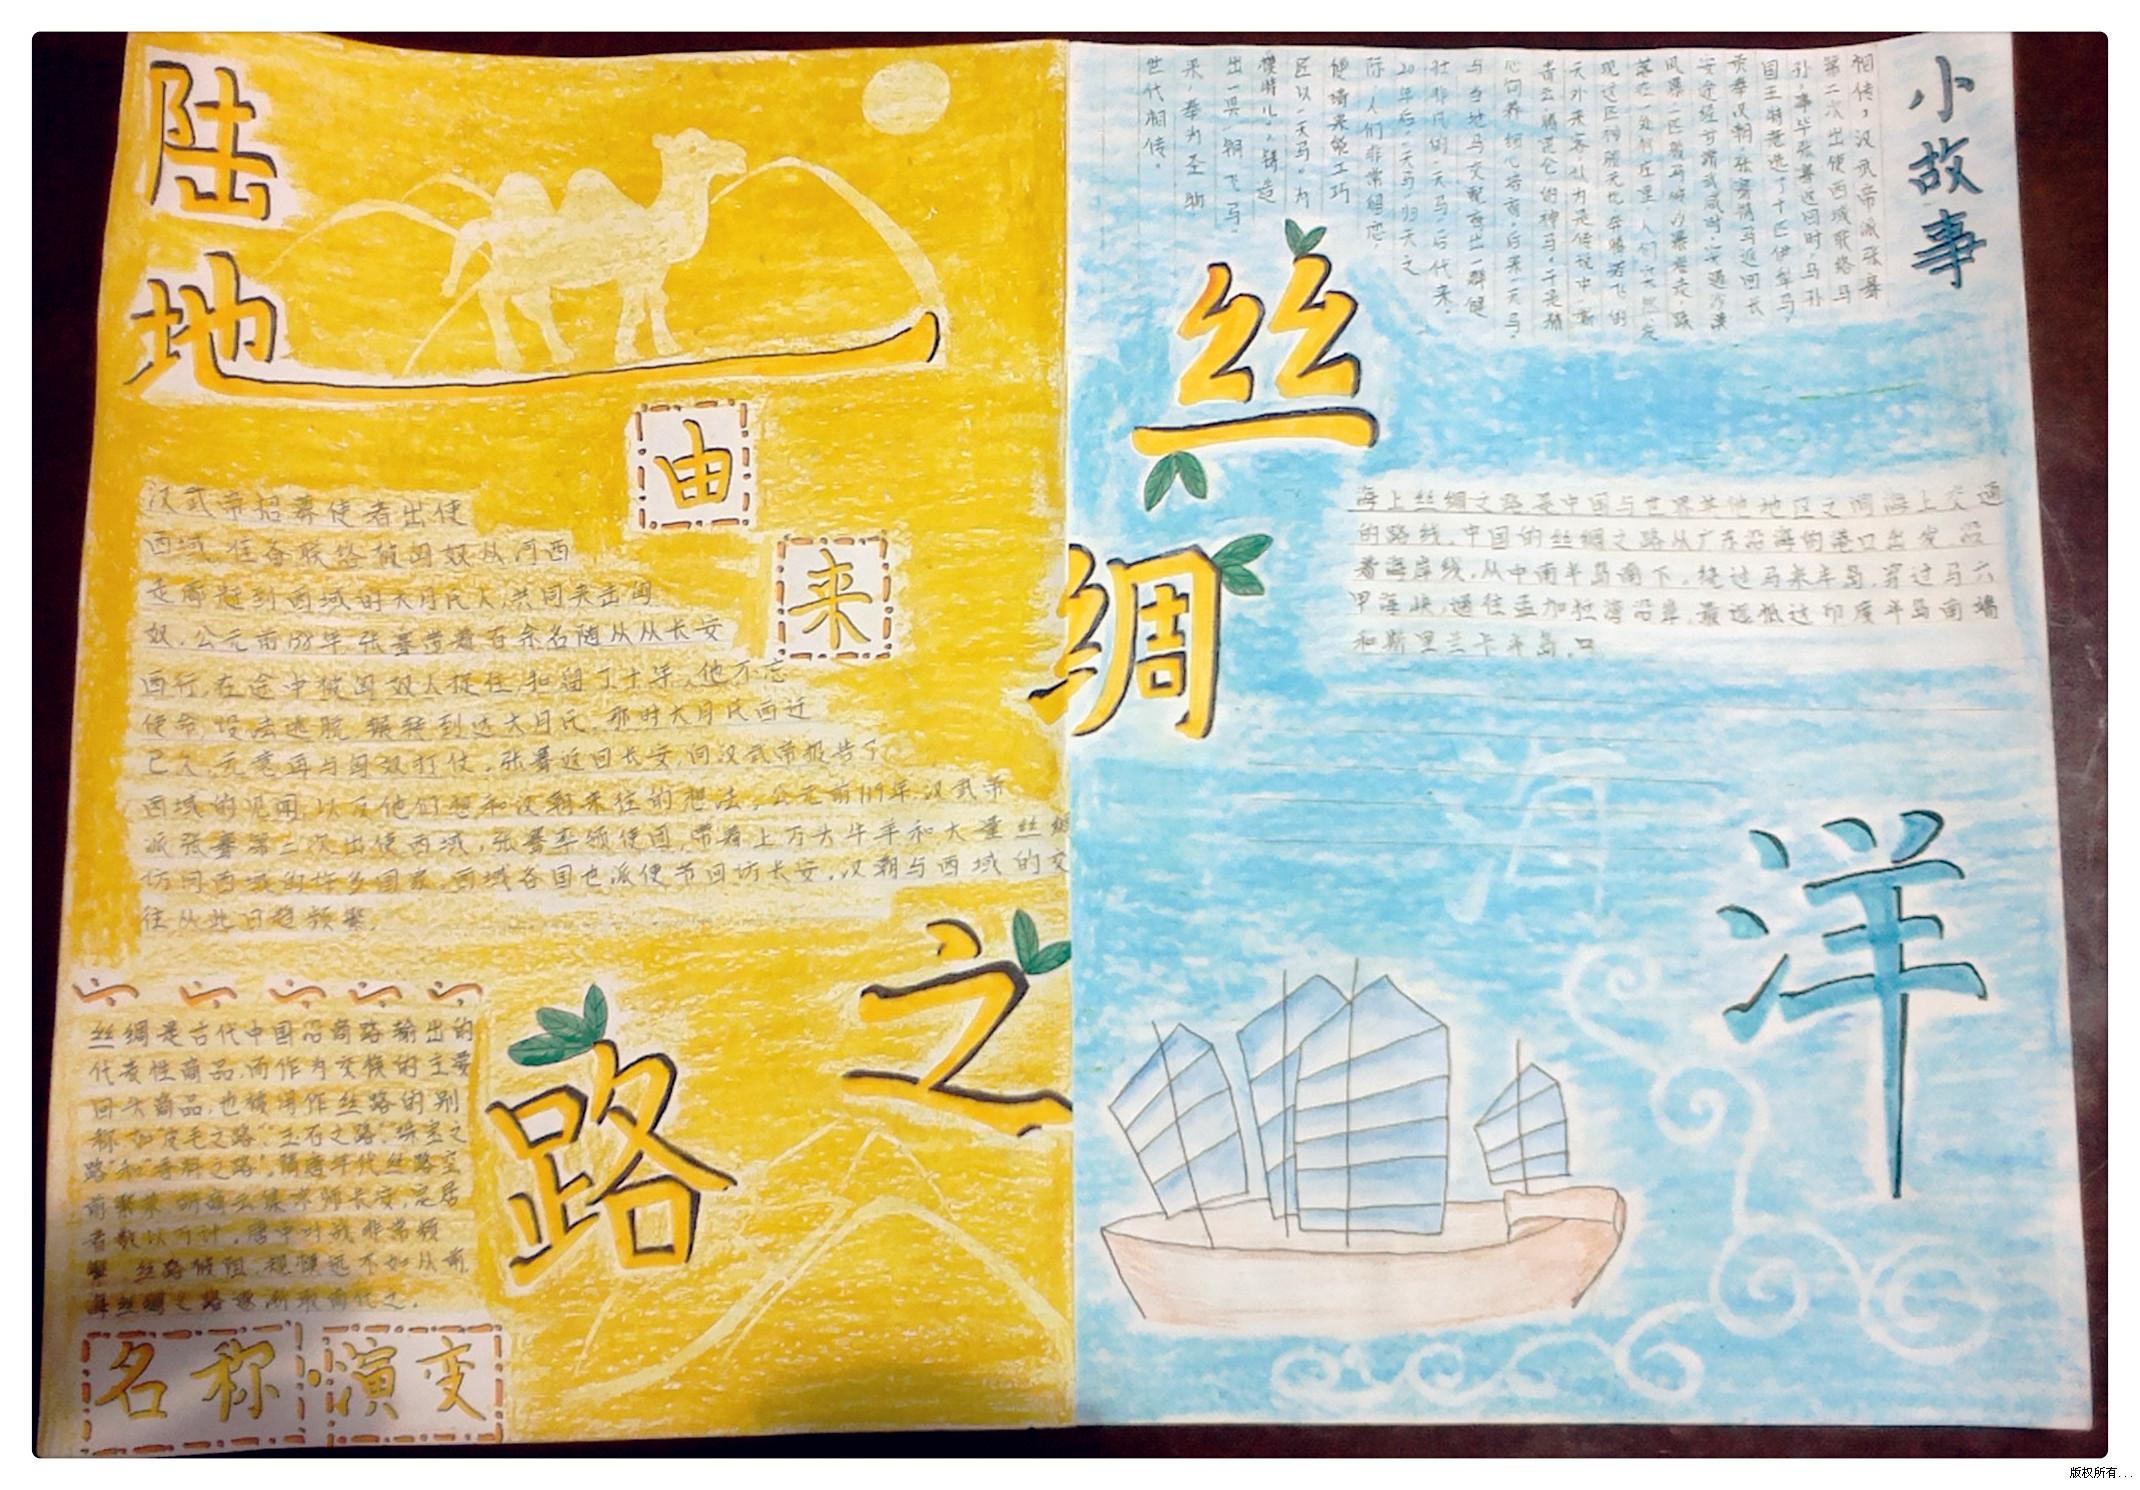 陆地
由来
汉武帝招募使者出使
西域,准备联络被匈奴从河西
走廊赶到西域的大月氏人,共同夹击匈
奴,公元前138年,张骞带着百余名随从从长安
西行,在途中被匈奴人捉住,扣留了十年,他不忘
使命,设法逃脱,辗转到达大月氏,那时大月氏西迁
已久,无意再与匈奴打仗,张骞返回长安,向汉武帝报告了
西域的见闻,以及他们想和汉朝来往的想法,公元前119年,汉武帝
派张骞第二次出使西域,张骞率领使团,带着上万头牛羊和大量丝绸
访问西域的许多国家,西域各国也派使节回访长安,汉朝与西域的交
往从此日趋频繁,
丝绸是古代中国沿商路输出的
代表性商品,而作为交换的主要
回头商品,也被用作丝路的别
称,如"皮毛之路""玉石之路","珠宝之
路"和"香料之路",隋唐年代丝路空
前繁荣 胡商云集京师长安,定居
者数以万计,唐中叶战非常频
繁 丝路被阻,规模远不如从前
海丝绸之路逐渐取而代之,
名称 演变
丝绸之路
小故事
相传,汉武帝派张骞
第二次出使西域联络乌
孙,事毕张骞返回时,乌孙
国王特地选了十匹伊犁马,
贡奉汉朝,张骞携马返回长
心饲养 后来"天马"
与当地马交配产出一群健
壮非凡的"天马"后代来,
20年后"天马"归天之
际,人们非常留恋,
便请来能工巧
匠以"天马"为
模特儿,铸造
出一具"铜飞马"
来,奉为圣物
世代相传。
海上丝绸之路是中国与世界其他地区之间海上交通
的路线,中国的丝绸之路从广东沿海的港口出发 沿
着海岸线,从中南半岛南下,绕过马来半岛,穿过马六
甲海峡,通往孟加拉湾沿岸,最远抵过印度半岛南端
和斯里兰卡半岛,口
海洋
版权所有...